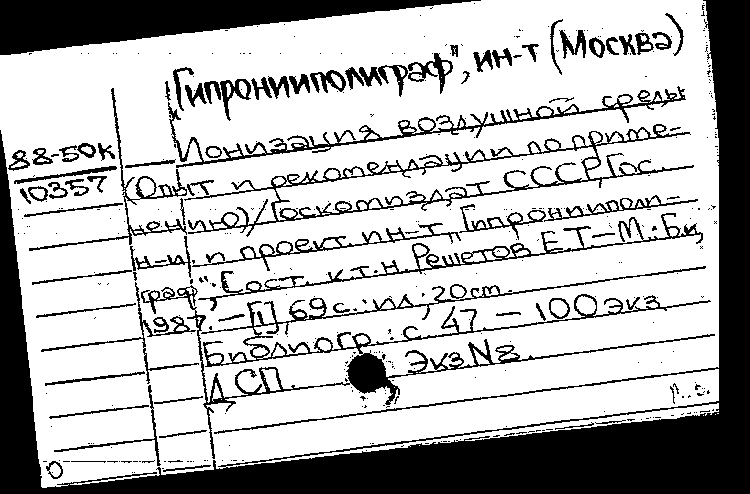 „Гипронииполиграф", ин-т (Москва)
88-50к
10357
Ионизация воздушной среды
(Опыт и рекомендации по приме-
нению) / Госкомиздат СССР, Гос.
н-и. и проект. ин-т „Гипрониполи-
граф"; Сост. к.т.н. Решетов Е.Т.-М.: Би,
1987. - [1], 69 с.: ил; 20 см.
Библиогр.: с 47 - 100 экз
Экз. N 8.
1 СП.